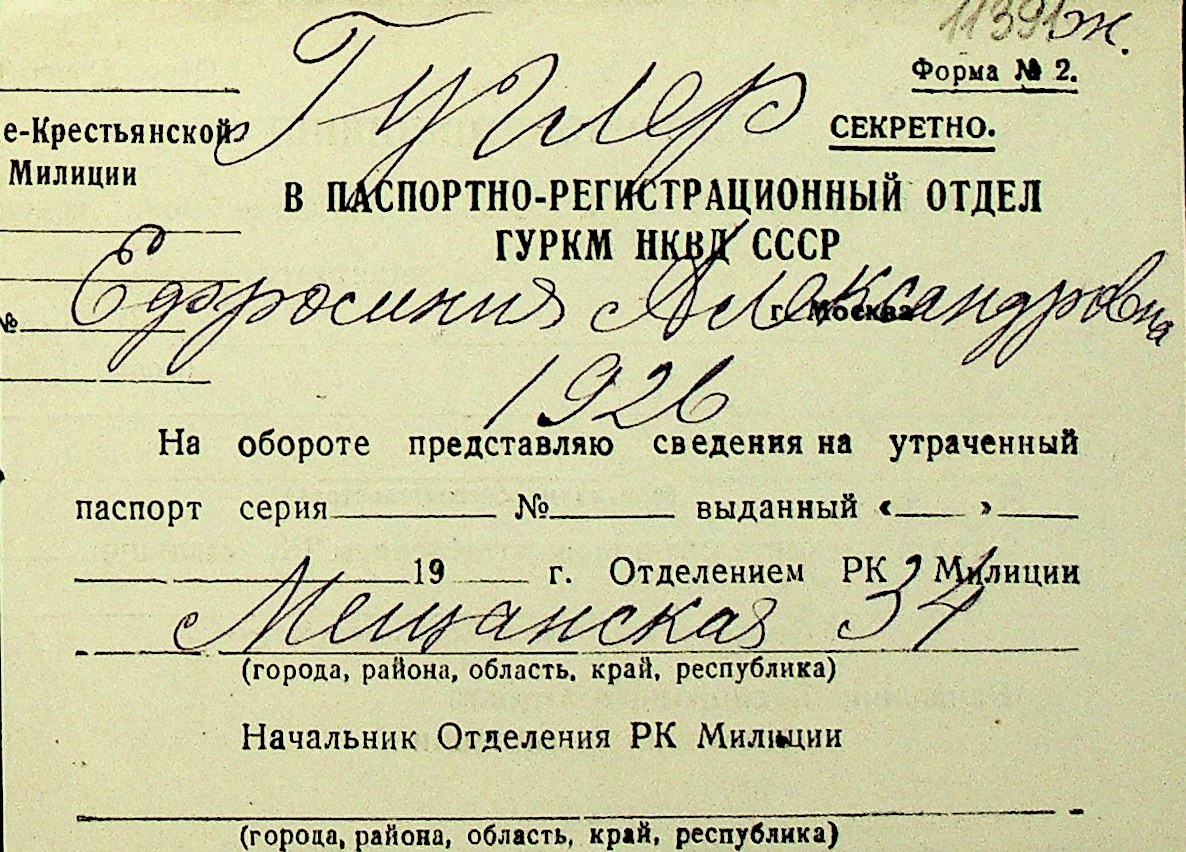 11391ж.
Гуглер
Форма № 2.
е-Крестьянской
СЕКРЕТНО.
Милиции
В ПАСПОРТНО-РЕГИСТРАЦИОННЫЙ ОТДЕЛ
ГУРКМ НКВД СССР
Ефросиния Александровна
№
г. Москва
1926
На обороте представляю сведения на утраченный
паспорт серия № выданный « »
19 г. Отделением РК Милиции
Мещанская 34
(города, района, область, край, республика)
Начальник Отделения РК Милиции
(города, района, область, край, республика)